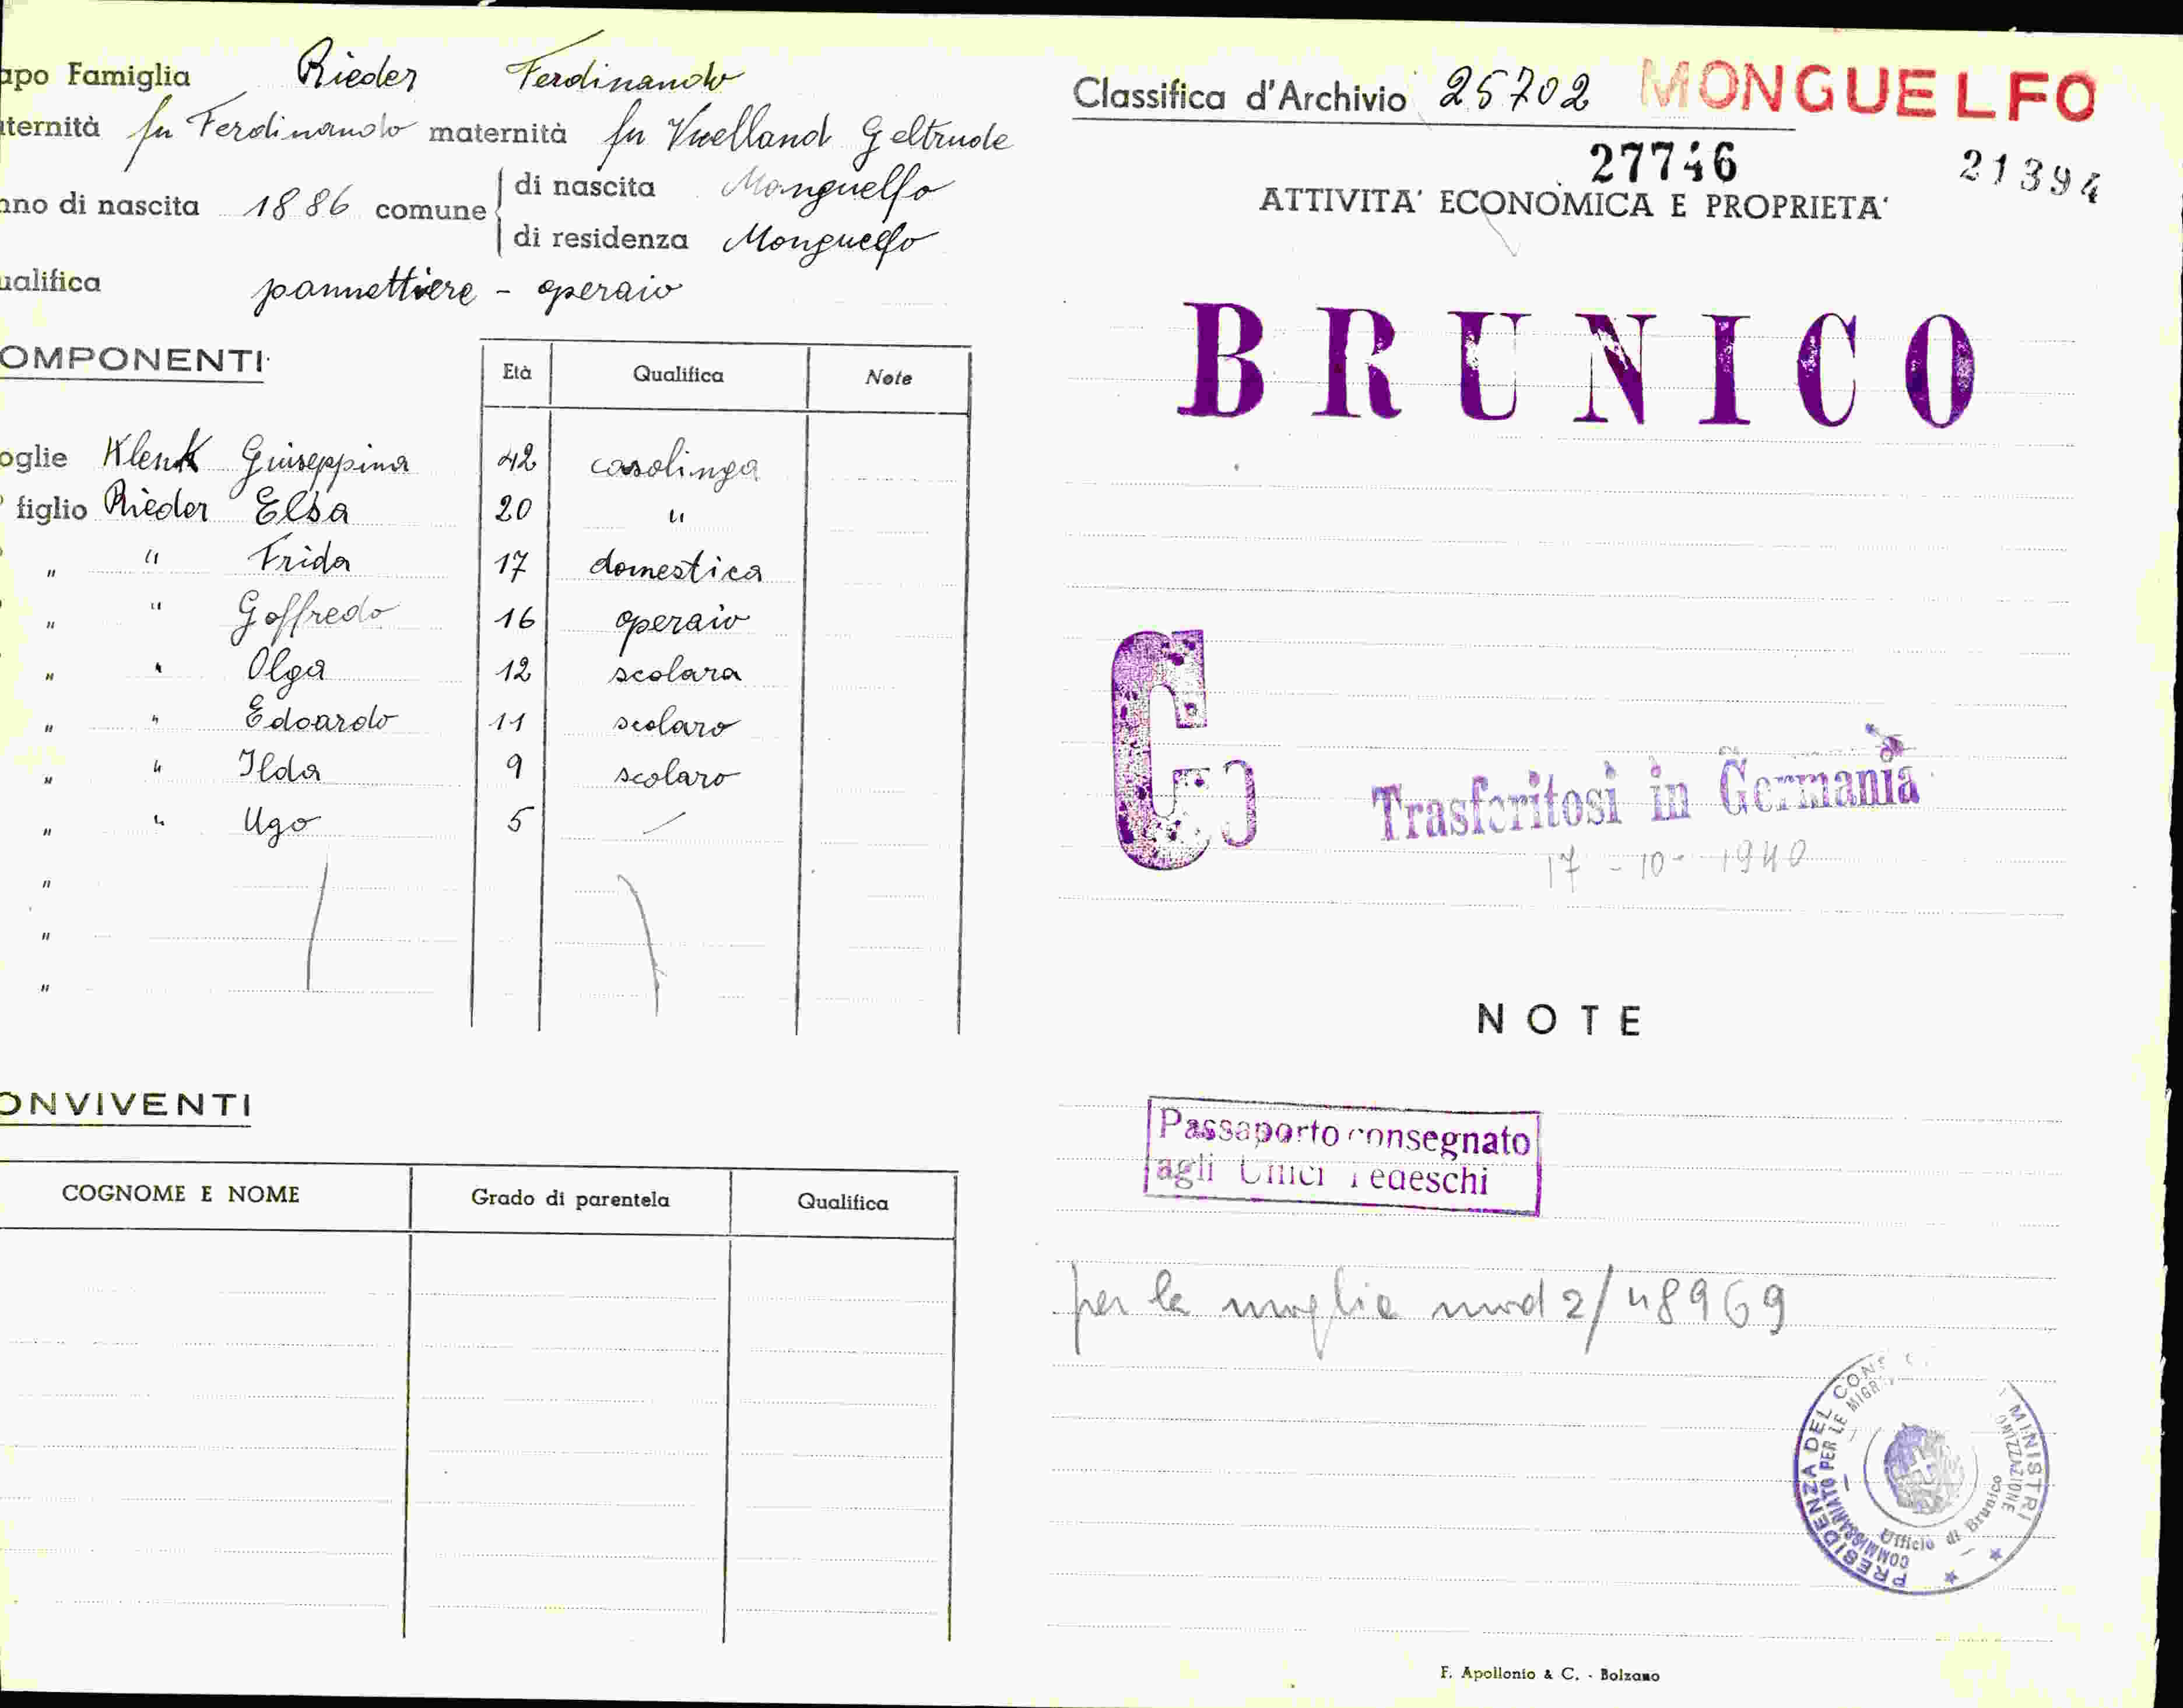 apo Famiglia Rieder Ferdinando
ternità fu Ferdinando maternità fu Vuelland Geltrude
nno di nascita 1886 comune di nascita Monguelfo
di residenza Monguelfo
ualifica pannettiere - operaio
OMPONENTI
Età Qualifica Note
oglie Klenk Giuseppina 42 casolinga
figlio Rieder Elsa 20 "
" " Frida 17 domestica
" " Goffredo 16 operaio
" " Olga 12 scolara
" " Edoardo 11 scolaro
" " Ilda 9 scolaro
" " Ugo 5 —
"
"
"
ONVIVENTI
COGNOME E NOME Grado di parentela Qualifica
Classifica d'Archivio 25702 MONGUELFO
27746 21394
ATTIVITA' ECONOMICA E PROPRIETA'
BRUNICO
C
Trasferitosi in Germania
17-10-1940
NOTE
Passaporto consegnato
agli Uffici Tedeschi
per la moglie mod 2/48969
PRESIDENZA DEL CONS MINISTRI
COMMISSARIATO PER LE MIGR ONIZZAZIONE
Ufficio di Brunico
F. Apollonio & C. - Bolzano